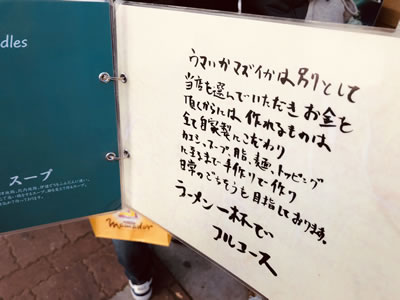 dles
スープ
ウマいかマズイかは別として
当店を選んでいただきお金を
頂くからには作れるものは
全て自家製にこだわり
カエシ、スープ、脂、麺、トッピング
に至るまで手作りで作り
日常のごちそうを目指しております。
ラーメン一杯で
フルコース